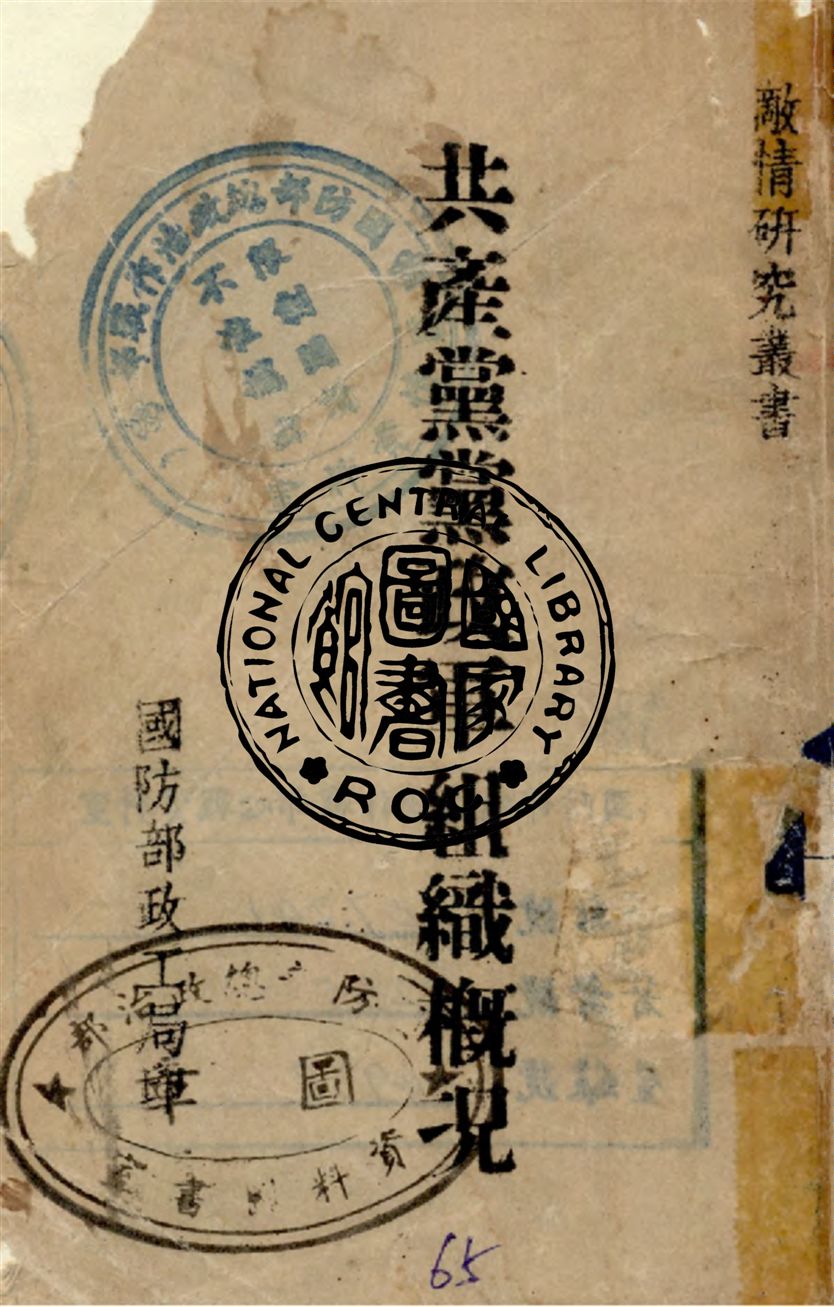 敵情研究叢書
共產黨黨政軍組織概況
國防部政工局印
NATIONAL CENTRAL LIBRARY
國家圖書館
ROC
圖
資料圖書室
65